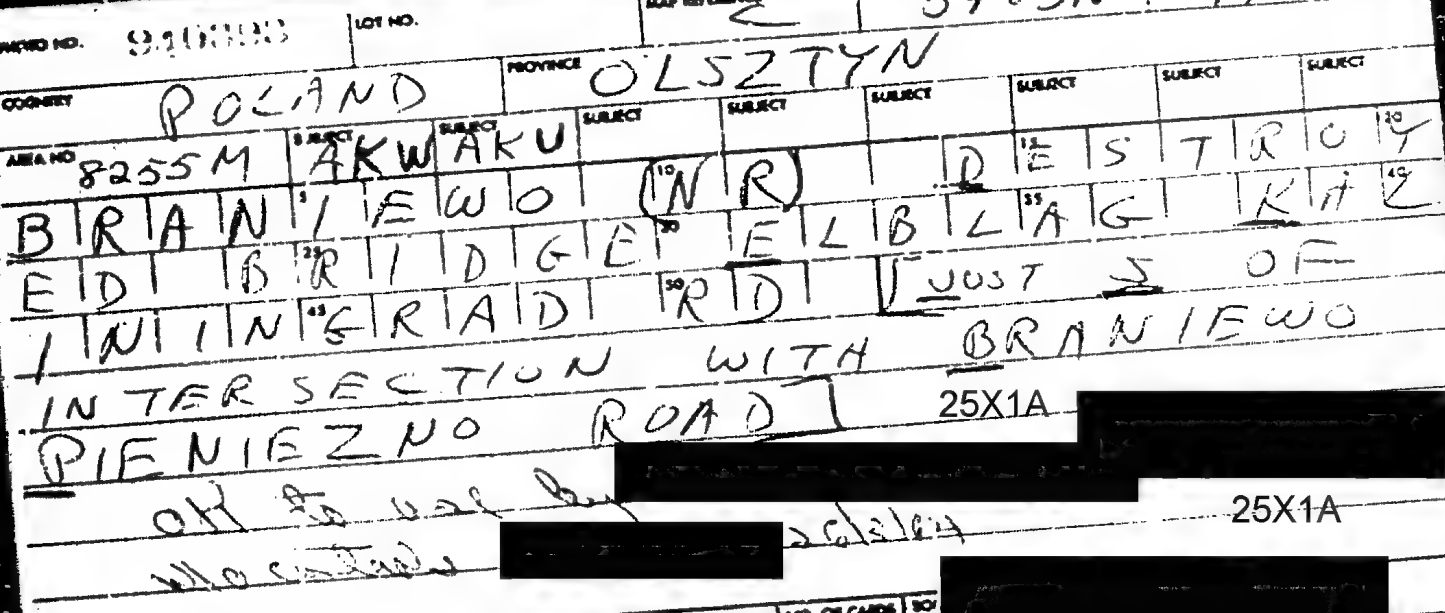 PHOTO NO. 940898 LOT NO.
COUNTRY POLAND PROVINCE OLSZTYN
AREA NO 8255M SUBJECT AKW SUBJECT AKU SUBJECT SUBJECT SUBJECT SUBJECT SUBJECT SUBJECT
BRANIEWO (NR) DESTROY
ED BRIDGE ELBLAG KAL
ININGRAD RD [JUST S OF
INTERSECTION WITH BRANIEWO
PIENIEZNO ROAD] 25X1A
OK to use by
25X1A